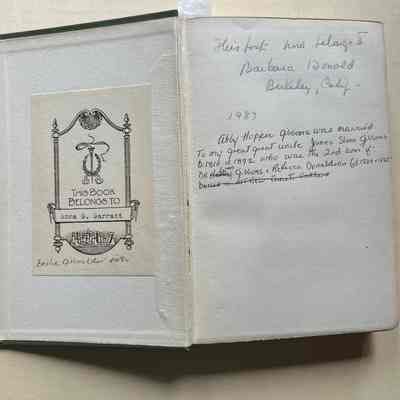 THIS BOOK
BELONGS TO
Anna S. Garratt
This book now belongs to
Barbara Donald
Berkeley, Calif.
1983
Abby Hopper Gibbons was married
to my great great uncle James Sloan Gibbons
B. 1810 d. 1892 who was the 2nd son of
Dr Gibbons, & Rebecca Donaldson